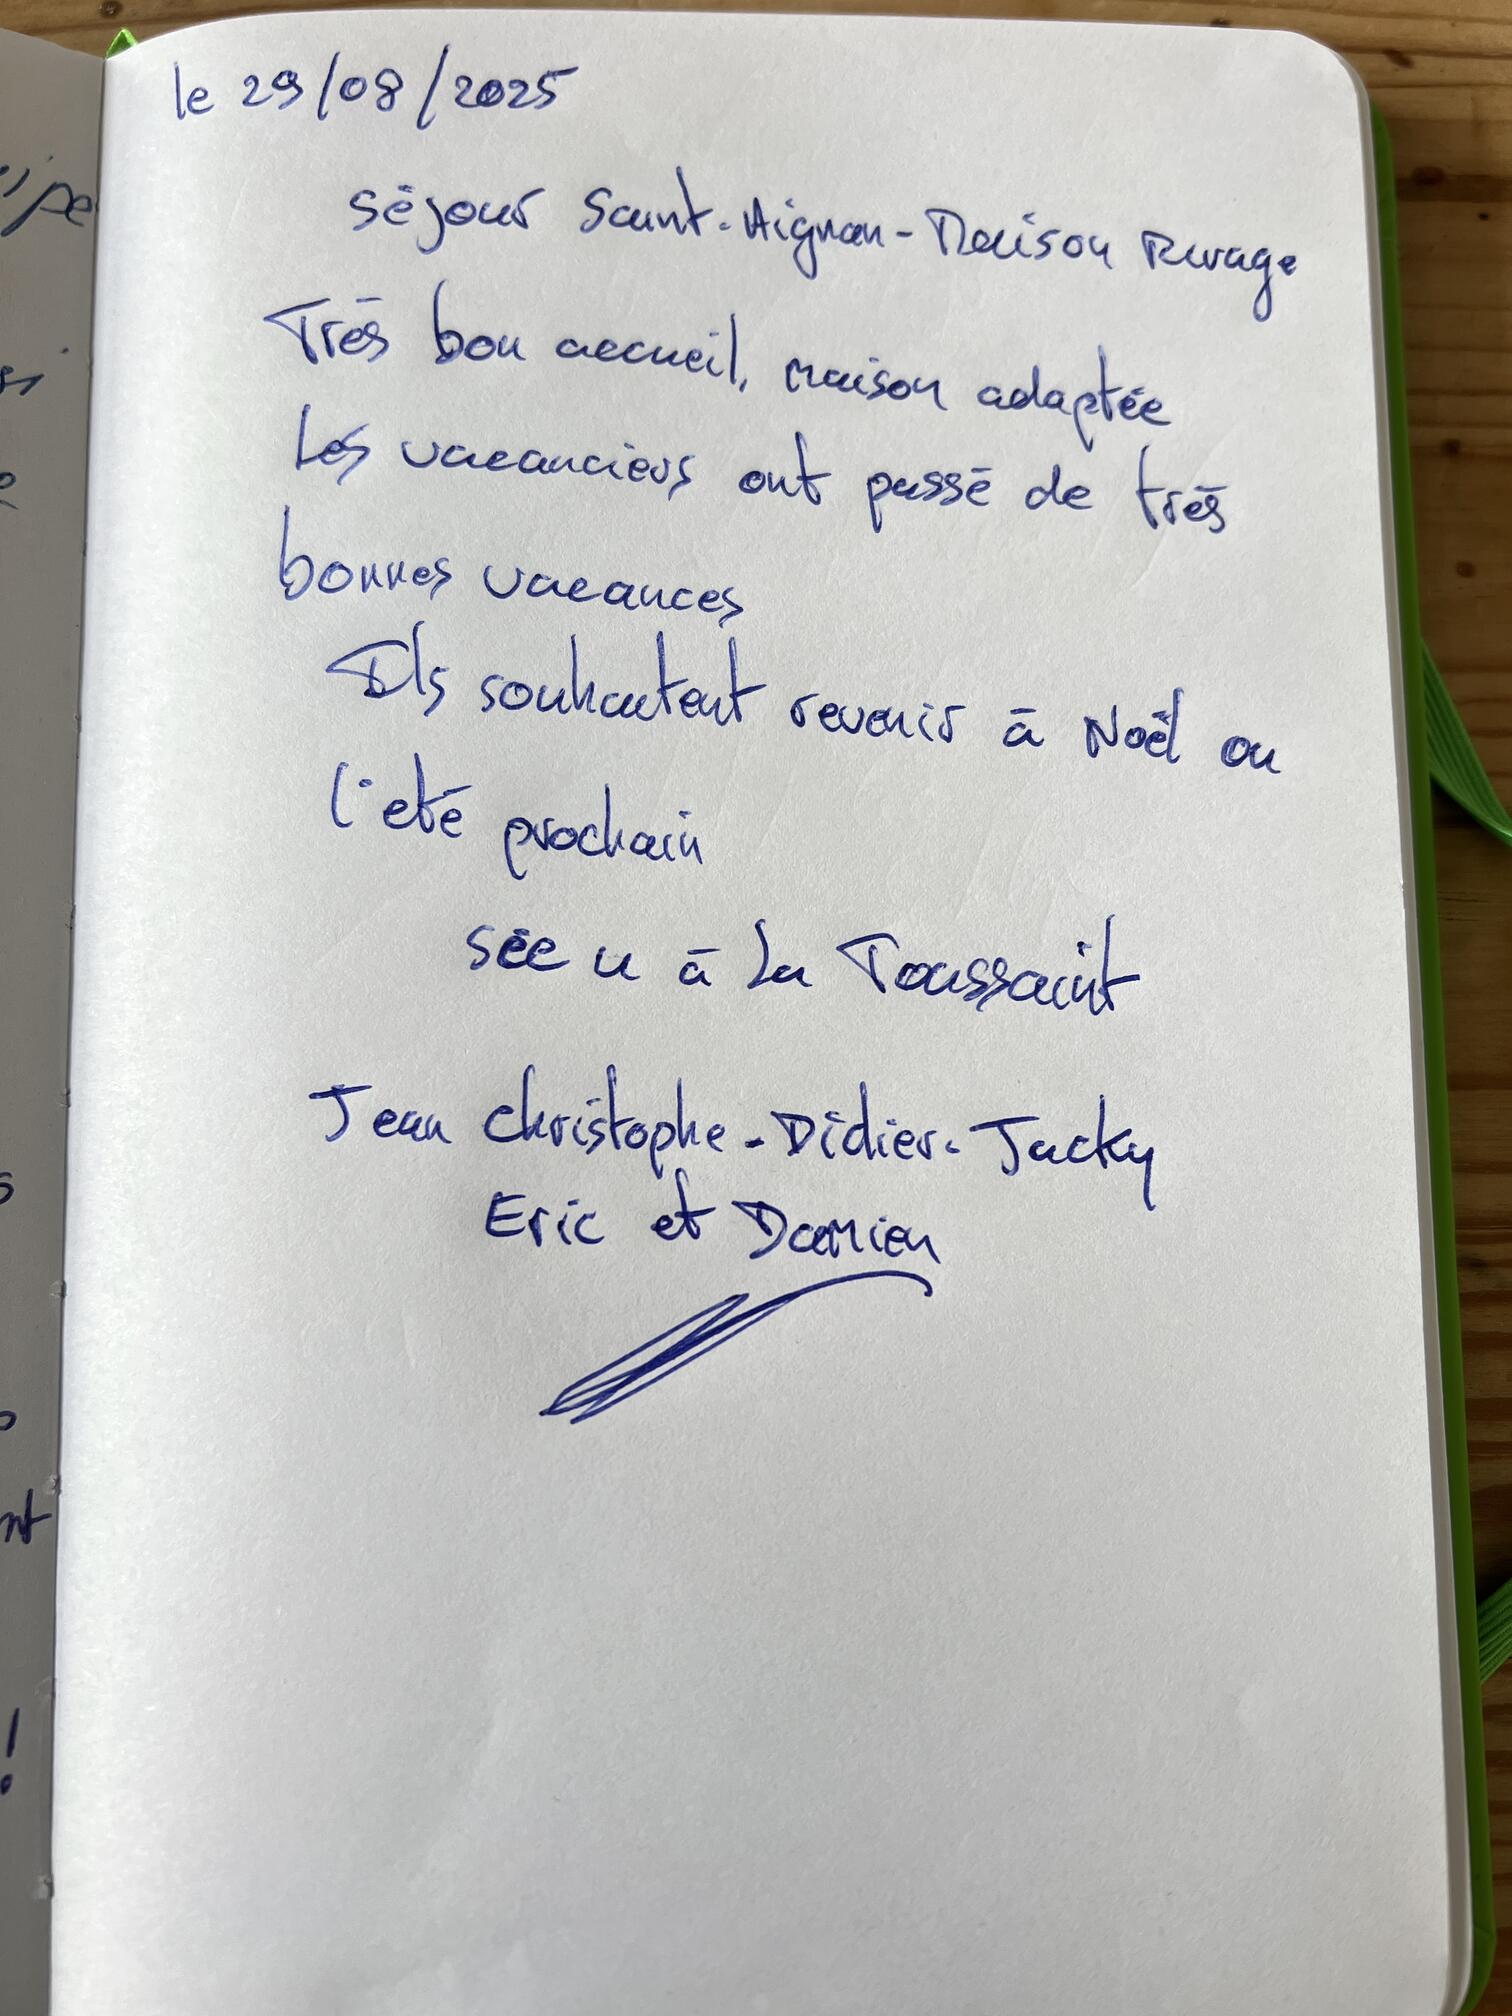 le 29/08/2025
séjour Saint-Aignan-Maison Rivage
Très bon accueil, maison adaptée
Les vacanciers ont passé de très
bonnes vacances
Ils souhaitent revenir à Noël ou
l'eté prochain
sée u à La Toussaint
Jean Christophe-Didier-Jacky
Eric et Damien